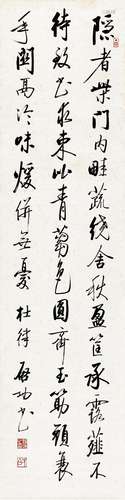 隱者柴門內畦蔬繞舍秋盈筐承露薤不
待致書求束比青蒭色圓齊玉筯頭衰
年關鬲冷味煖併無憂 杜律 啟功書